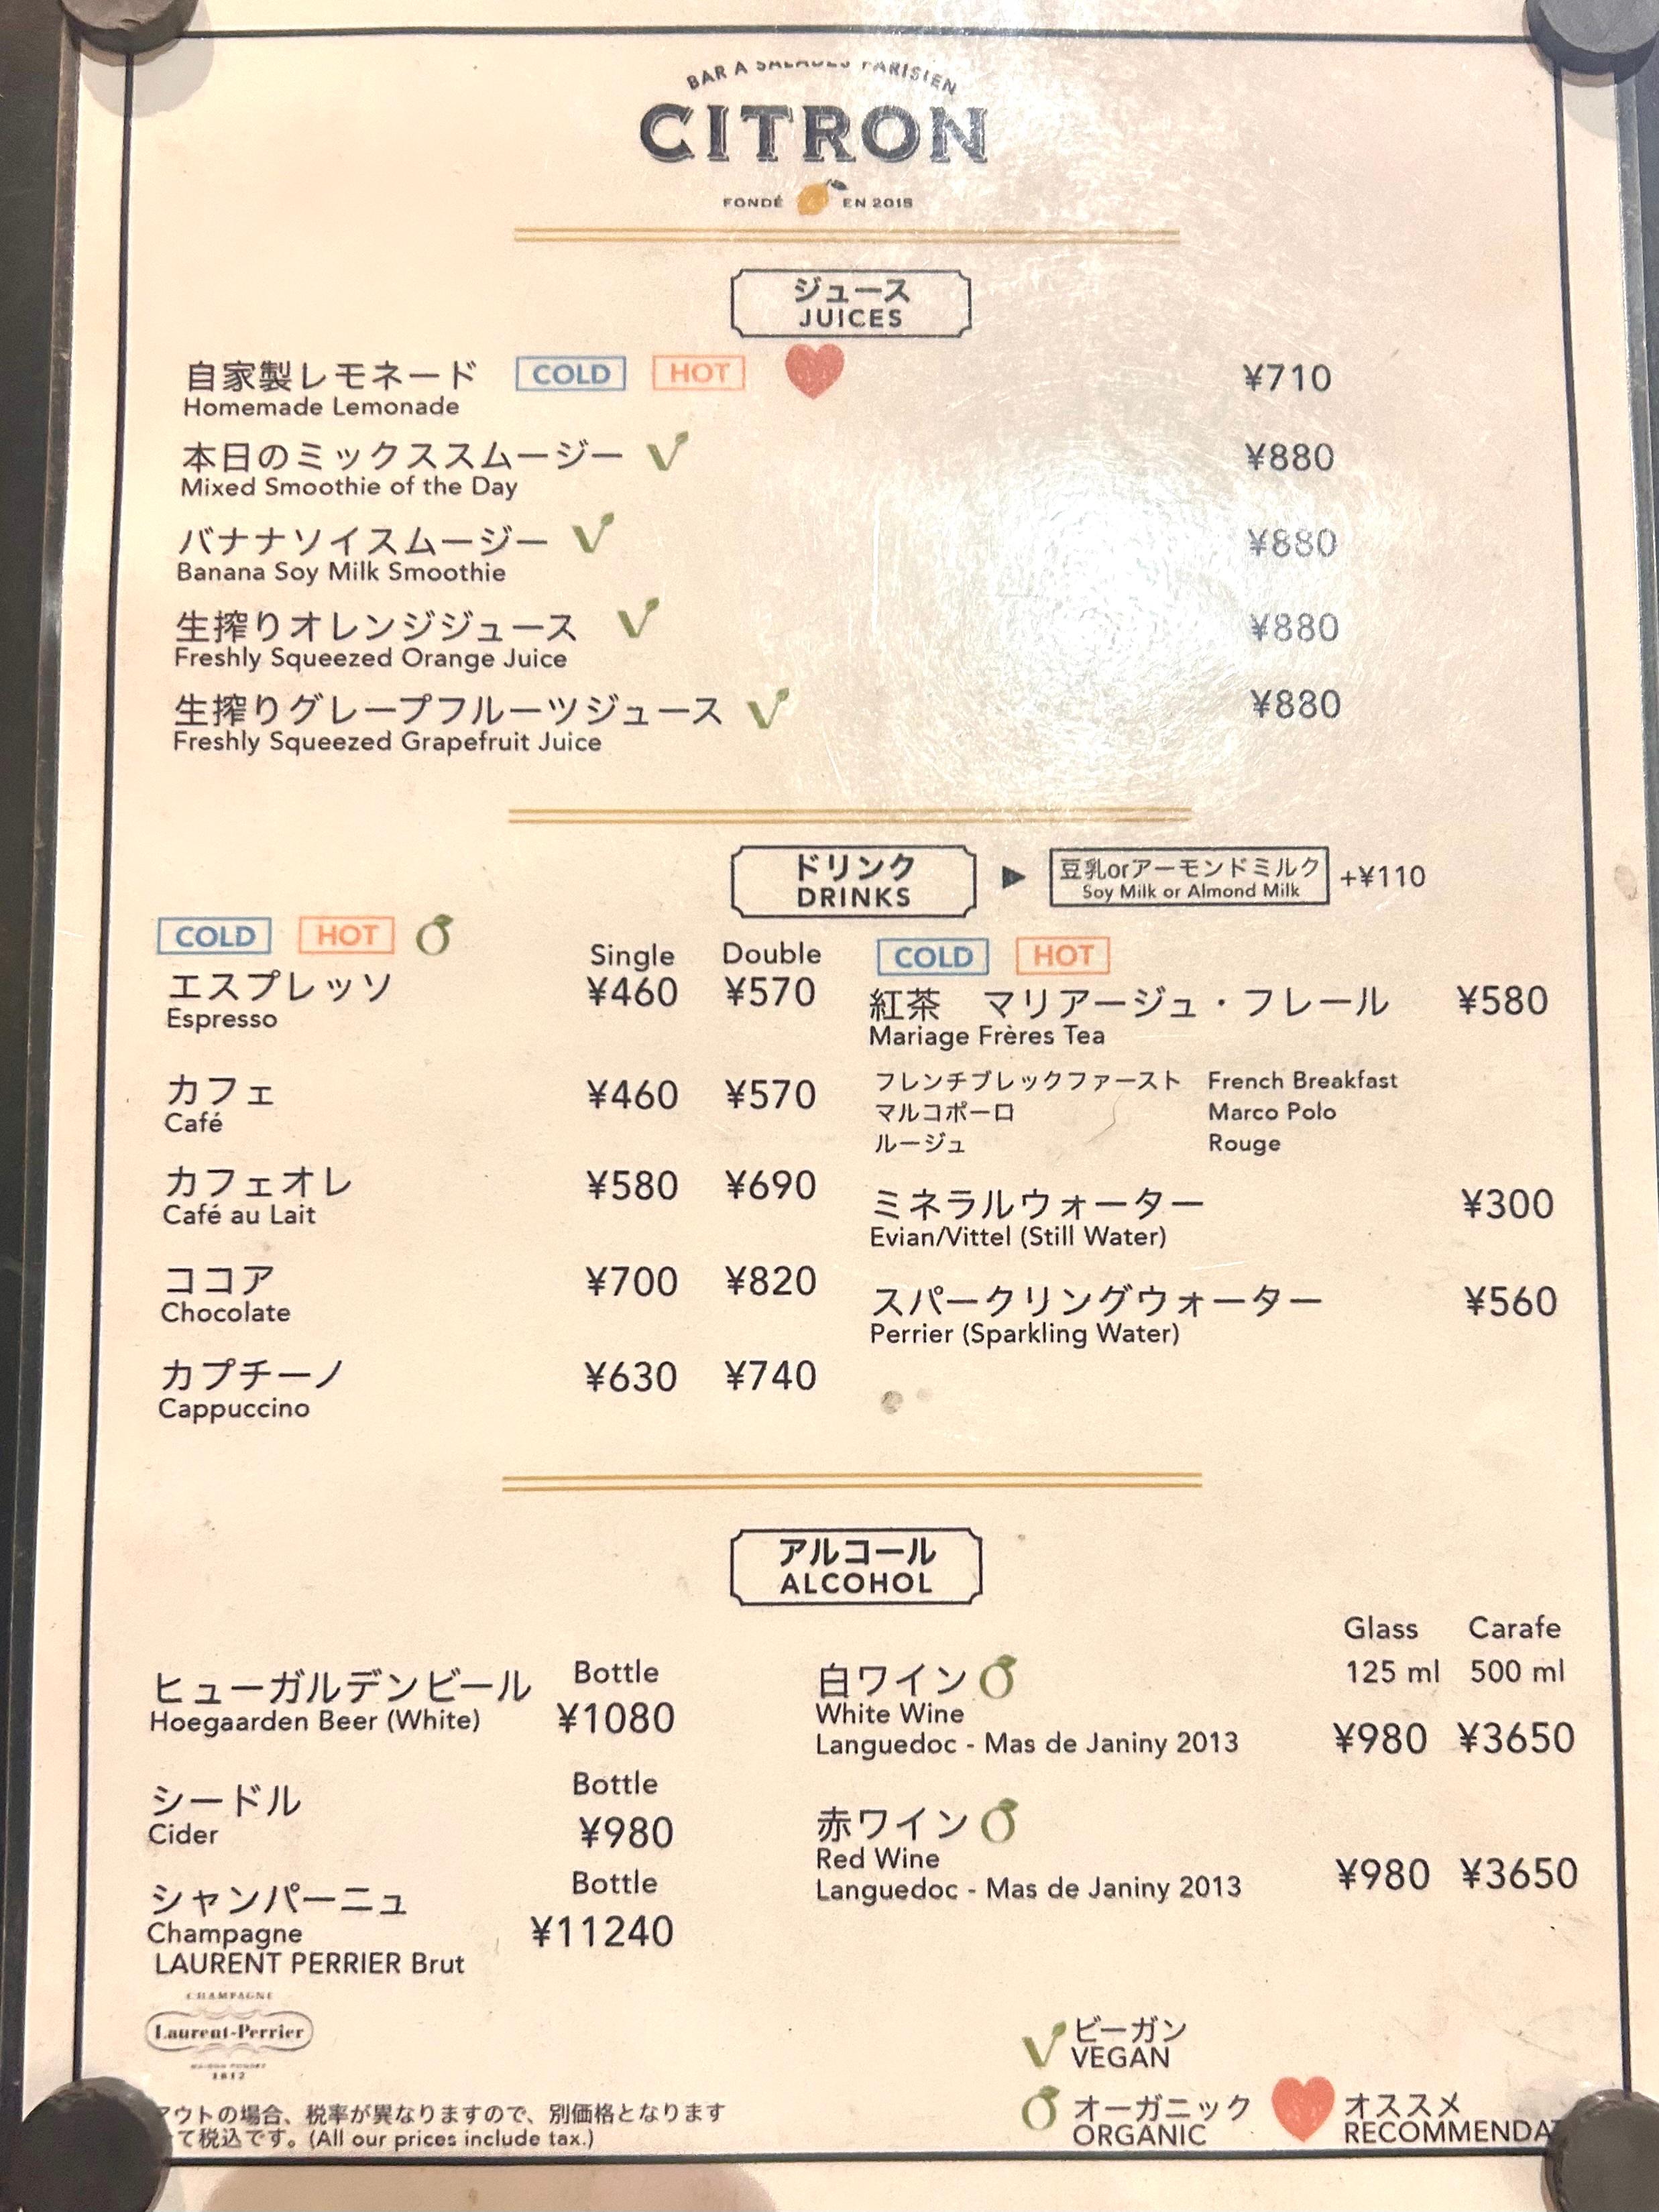 BAR A SALADES PARISIEN
CITRON
FONDÉ EN 2015
ジュース
JUICES
自家製レモネード COLD HOT ¥710
Homemade Lemonade
本日のミックススムージー ¥880
Mixed Smoothie of the Day
バナナソイスムージー ¥880
Banana Soy Milk Smoothie
生搾りオレンジジュース ¥880
Freshly Squeezed Orange Juice
生搾りグレープフルーツジュース ¥880
Freshly Squeezed Grapefruit Juice
ドリンク
DRINKS
豆乳orアーモンドミルク +¥110
Soy Milk or Almond Milk
COLD HOT
Single Double
エスプレッソ ¥460 ¥570
Espresso
カフェ ¥460 ¥570
Café
カフェオレ ¥580 ¥690
Café au Lait
ココア ¥700 ¥820
Chocolate
カプチーノ ¥630 ¥740
Cappuccino
COLD HOT
紅茶 マリアージュ・フレール ¥580
Mariage Frères Tea
フレンチブレックファースト French Breakfast
マルコポーロ Marco Polo
ルージュ Rouge
ミネラルウォーター ¥300
Evian/Vittel (Still Water)
スパークリングウォーター ¥560
Perrier (Sparkling Water)
アルコール
ALCOHOL
Bottle
ヒューガルデンビール
Hoegaarden Beer (White) ¥1080
Bottle
シードル
Cider ¥980
Bottle
シャンパーニュ
Champagne ¥11240
LAURENT PERRIER Brut
CHAMPAGNE
Laurent-Perrier
1812
Glass Carafe
125 ml 500 ml
白ワイン
White Wine
Languedoc - Mas de Janiny 2013 ¥980 ¥3650
赤ワイン
Red Wine
Languedoc - Mas de Janiny 2013 ¥980 ¥3650
ビーガン
VEGAN
オーガニック
ORGANIC
オススメ
RECOMMENDA
アウトの場合、税率が異なりますので、別価格となります
て税込です。(All our prices include tax.)